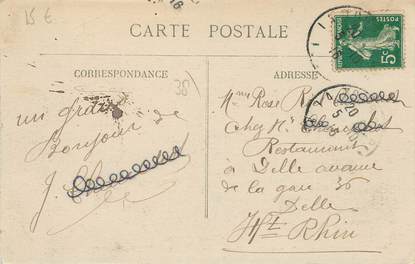 15 €
CARTE POSTALE
POSTES
5c
CORRESPONDANCE
38
ADRESSE
un
Bonjour de
J.
Rose
Chez
Restaurant
à Delle avenue
de la gare 36
Delle
Ht Rhin